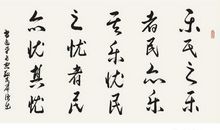 乐民之乐
者民亦乐
其乐忧民
之忧者民
亦忧其忧